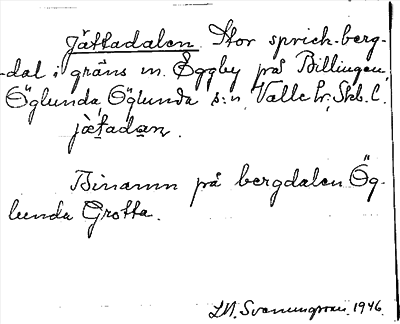 Jättadalen. Stor sprick-berg-
-dal i gräns m. Eggby på Billingen,
Öglunda, Öglunda s:n, Valle hr, Skb. l.
jätadan.
Binamn på bergdalen Ög-
lunda Grotta.
1946.